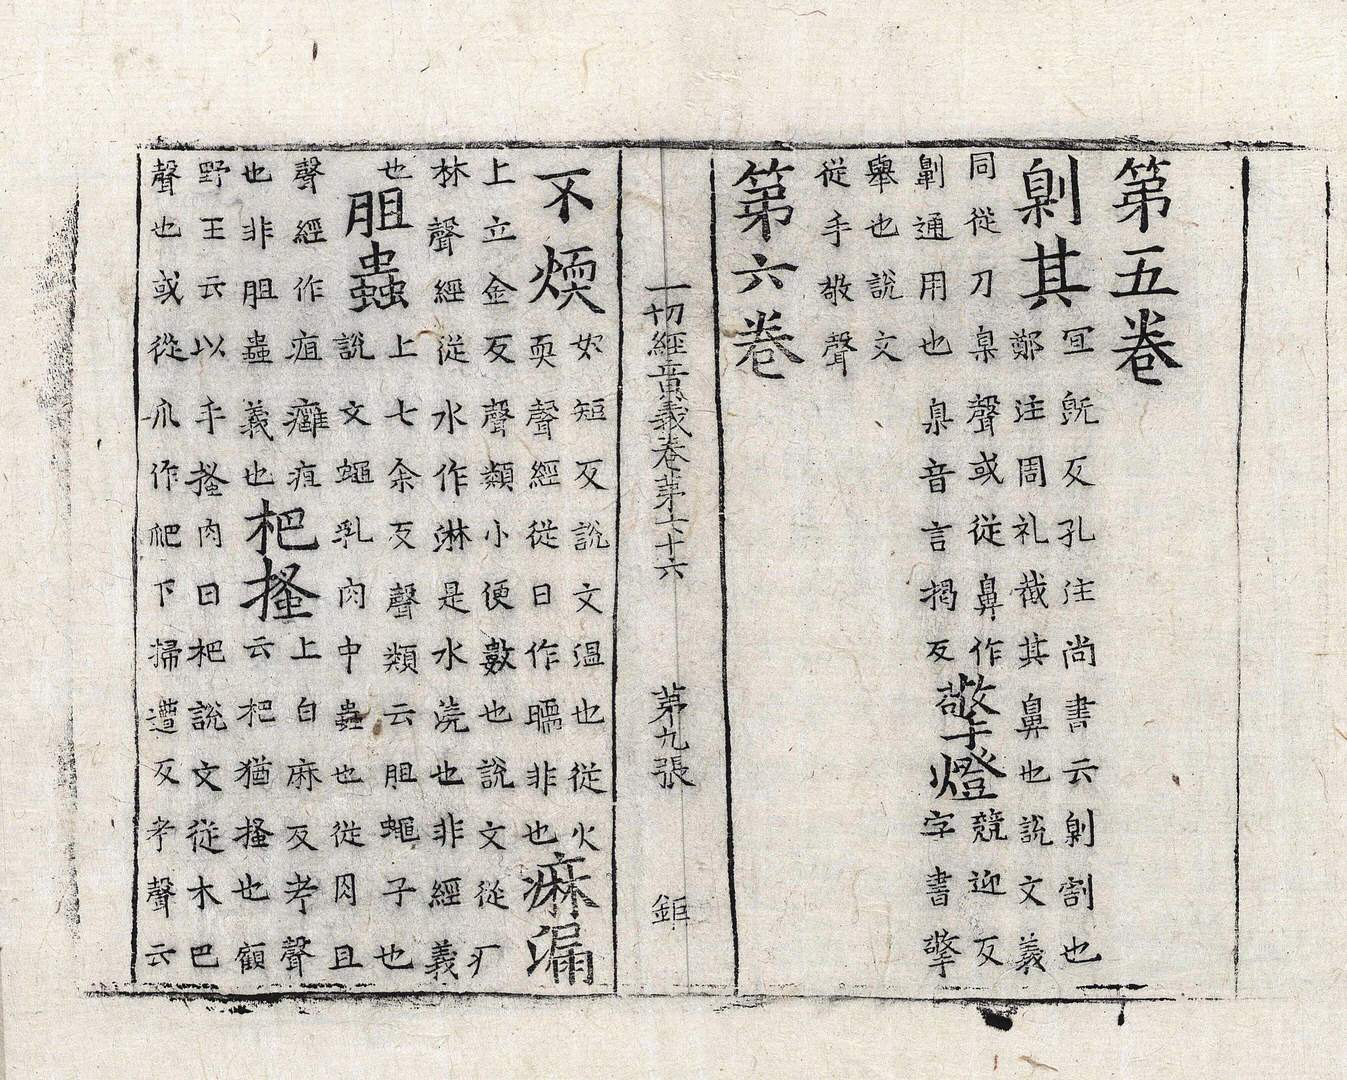 第五卷
劓其
冝旣反孔注尚書云劓割也
鄭注周礼截其鼻也說文義
同從刀臬聲或從鼻作
劓通用也臬音言揭反
擎燈
競迎反
字書擎
舉也說文
從手敬聲
第六卷
一切經音義卷苐六十六 苐九張 鉅
不煗
奴短反說文溫也從火
耎聲經從日作曘非也
痳漏
上立金反聲類小便數也說文從疒
林聲經從水作淋是水澆也非經義
也
胆蟲
上七余反聲類云胆蠅子也
說文蠅乳肉中蟲也從肉且
聲經作疽癰疽
也非胆蟲義也
杷搔
上自麻反考聲
云杷猶搔也顧
野王云以手搔肉曰杷說文從木巴
聲也或從爪作爬下掃遭反考聲云